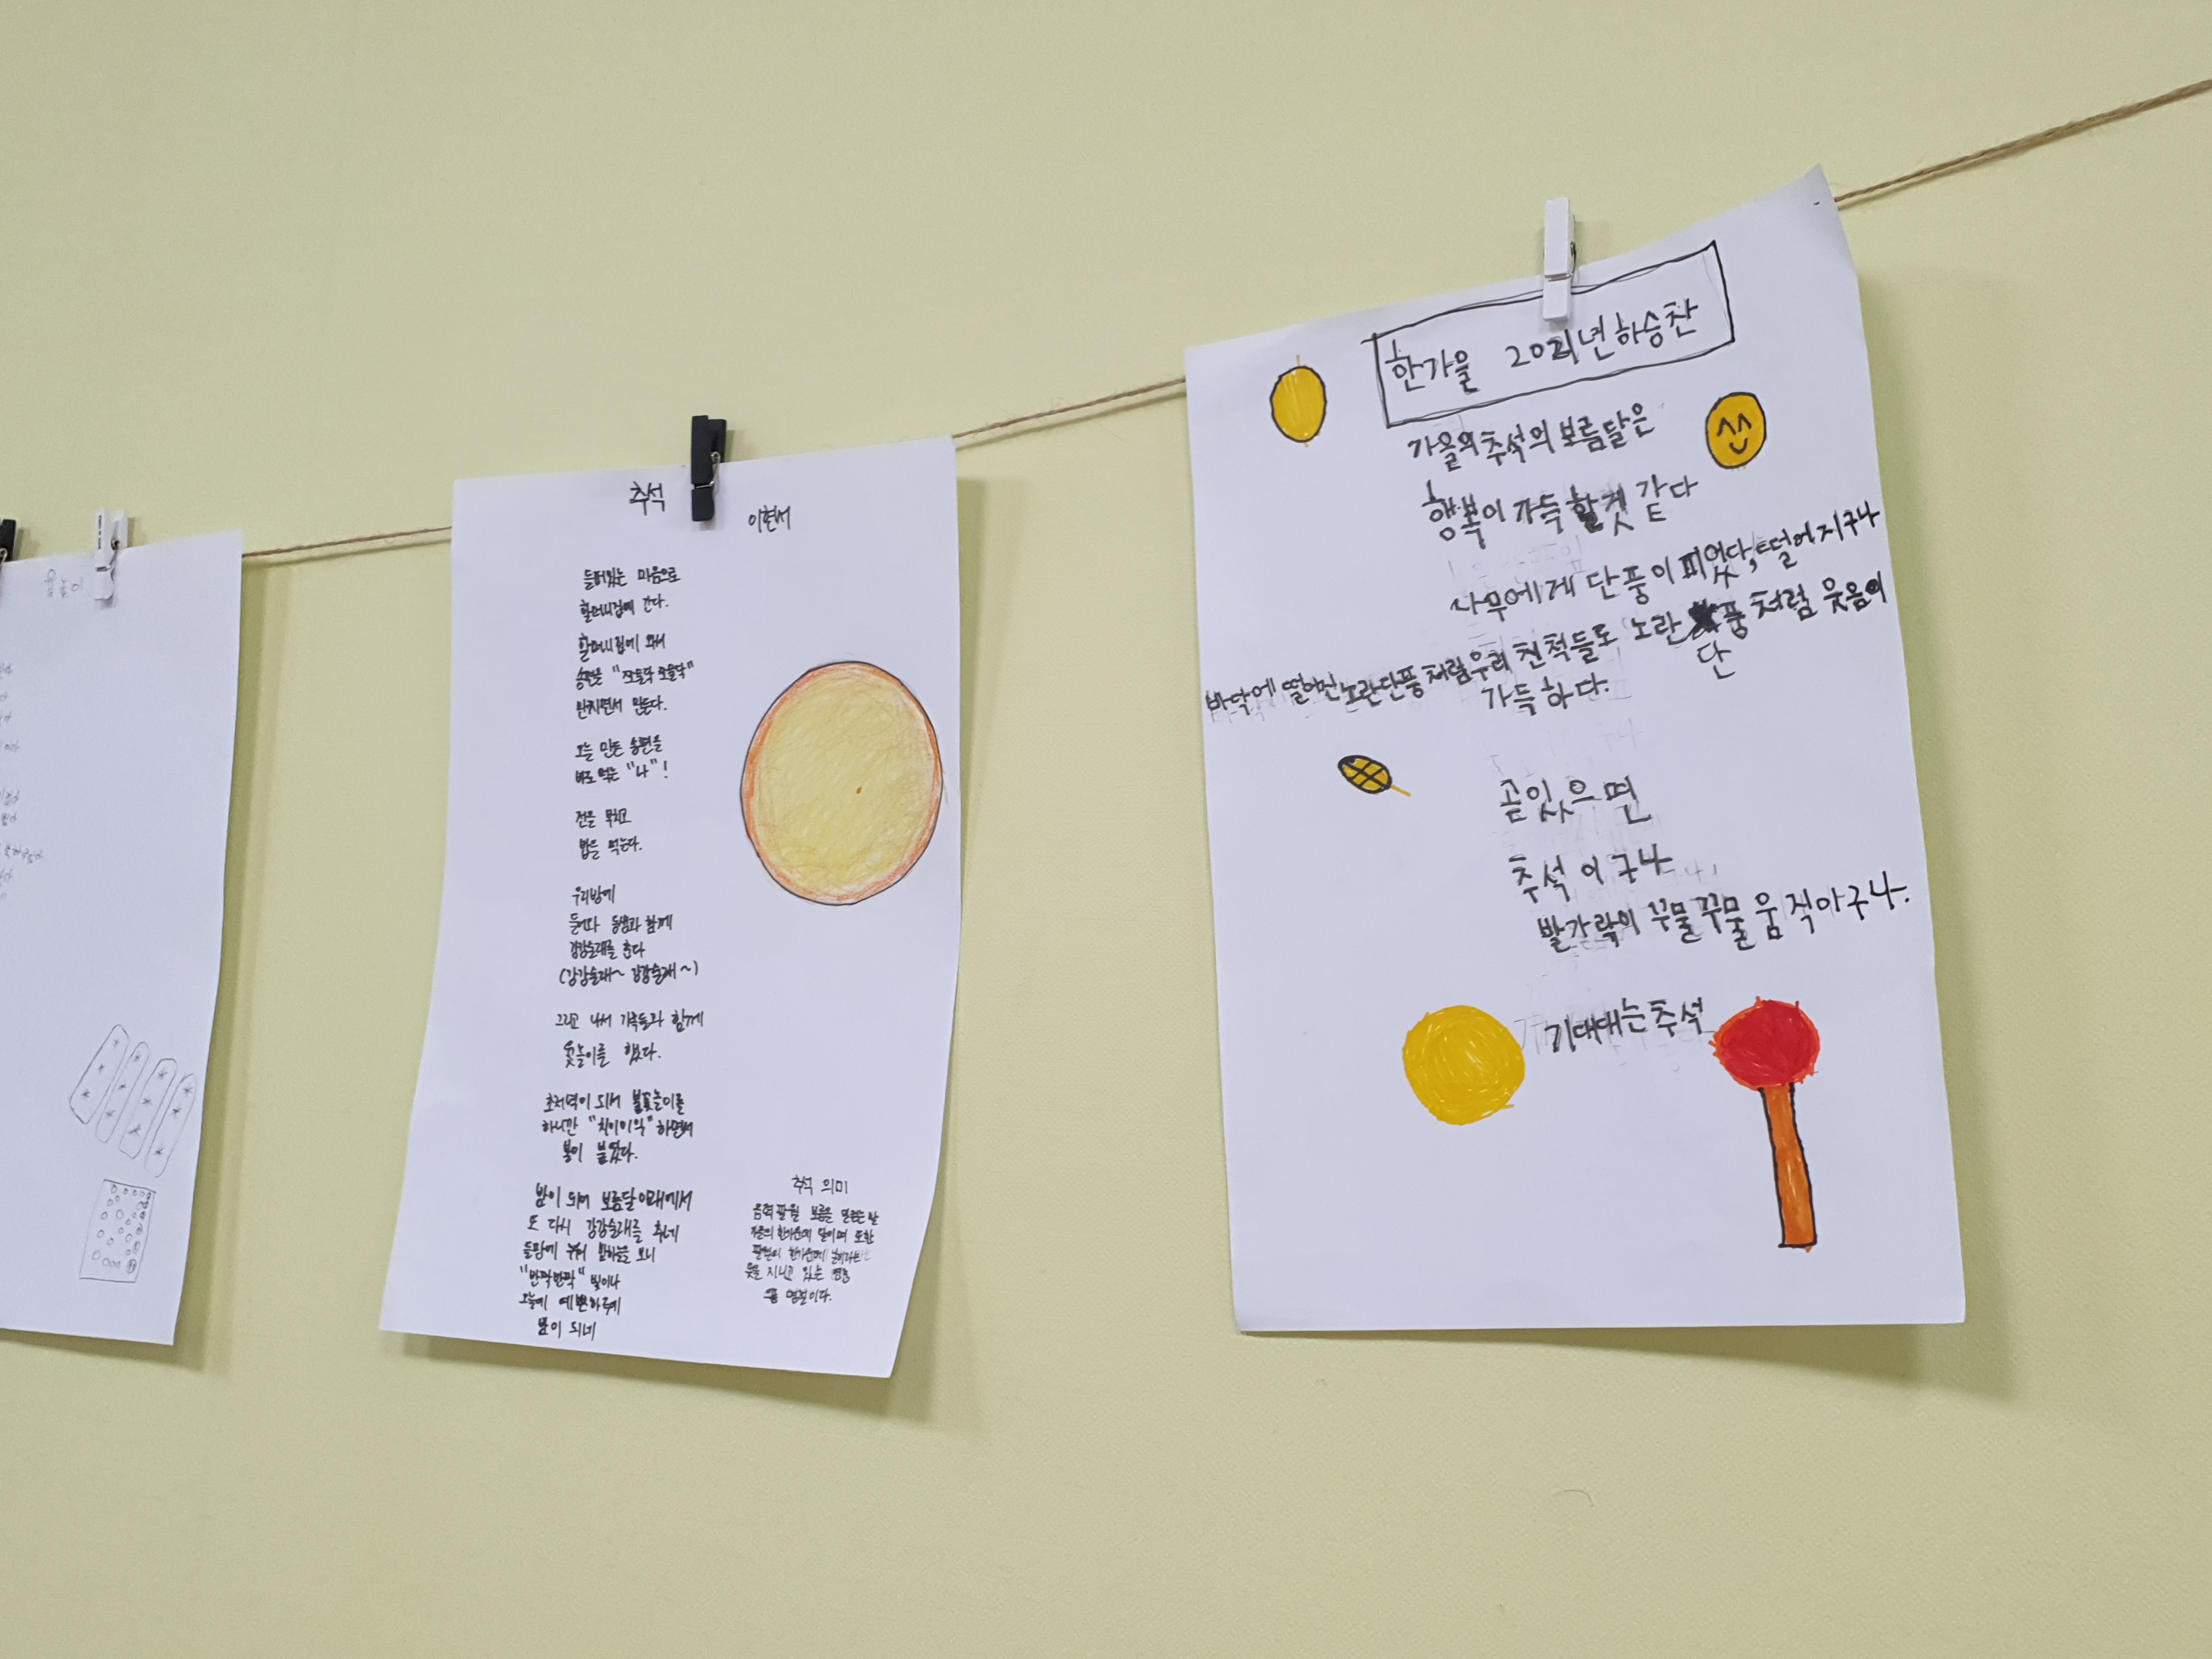 윷놀이
추석
이현서
들떠있는 마음으로
할머니집에 간다.
할머니집에 와서
송편을 "쪼물딱 쪼물딱"
만지면서 만든다.
오늘 만든 송편을
바로 먹는 "나"!
전을 부치고
밥을 먹는다.
우리방에
들어와 동생과 함께
강강술래를 춘다
(강강술래~ 강강술래~)
그리고 나서 가족들과 함께
윷놀이를 했다.
초저녁이 되서 불꽃놀이를
하니깐 "치이이익" 하면서
불이 붙었다.
밤이 되어 보름달 아래에서
또 다시 강강술래를 추네
들판에 누워 밤하늘을 보니
"반짝반짝" 빛이나
오늘에 예쁜하루에
밤이 되네
추석 의미
음력 팔월 보름을 일컫는 말
가을의 한가운데 달이며 또한
팔월의 한가운데 날이라는
뜻을 지니고 있는
명절이다.
한가을 2021년 하승찬
가을의 추석의 보름달은
행복이 가득 할겻 같다
나무에게 단풍이 피었닥, 떨에지구나
바닥에 떨어진 노란단풍 처럼 우리 친척들도 노란 단풍 처럼 웃음이
가득하다.
곧있으면
추석 이구나
발가락이 꾸물꾸물 움직아구나.
기대대는 추석